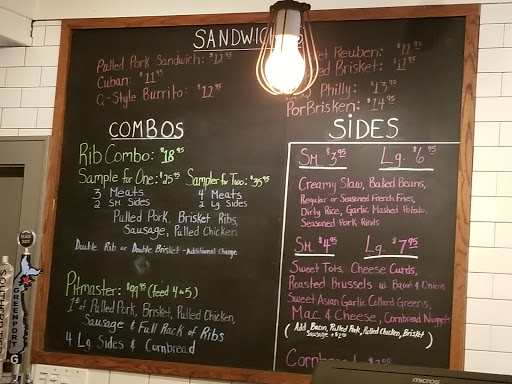 SANDWIC
Pulled Pork Sandwich: $12.95
Cuban: $11.95
Q-Style Burrito: $12.95
Reuben: $11.95
Brisket: $11.95
Philly: $13.95
PorBrisken: $14.95
COMBOS
Rib Combo: $18.95
Sample for One: $25.95 Sampler for Two: $35.95
3 Meats
2 Sm. Sides
4 Meats
2 Lg Sides
Pulled Pork, Brisket, Ribs,
Sausage, Pulled Chicken
Double Rib or Double Brisket - Additional Charge
Pitmaster: $99.95 (feed 4 to 5)
1# of Pulled Pork, Brisket, Pulled Chicken,
Sausage & Full Rack of Ribs
4 Lg. Sides & Cornbread
SIDES
Sm. $3.95 Lg. $6.95
Creamy Slaw, Baked Beans,
Regular or Seasoned French Fries,
Dirty Rice, Garlic Mashed Potato,
Seasoned Pork Rinds
Sm. $4.95 Lg. $7.95
Sweet Tots, Cheese Curds,
Roasted Brussels w. Bacon & Onions
Sweet Asian Garlic Collard Greens,
Mac & Cheese, Cornbread Nuggets
(Add Bacon, Pulled Pork, Pulled Chicken, Brisket,
Sausage
Cornbread
micros
GREENPORT